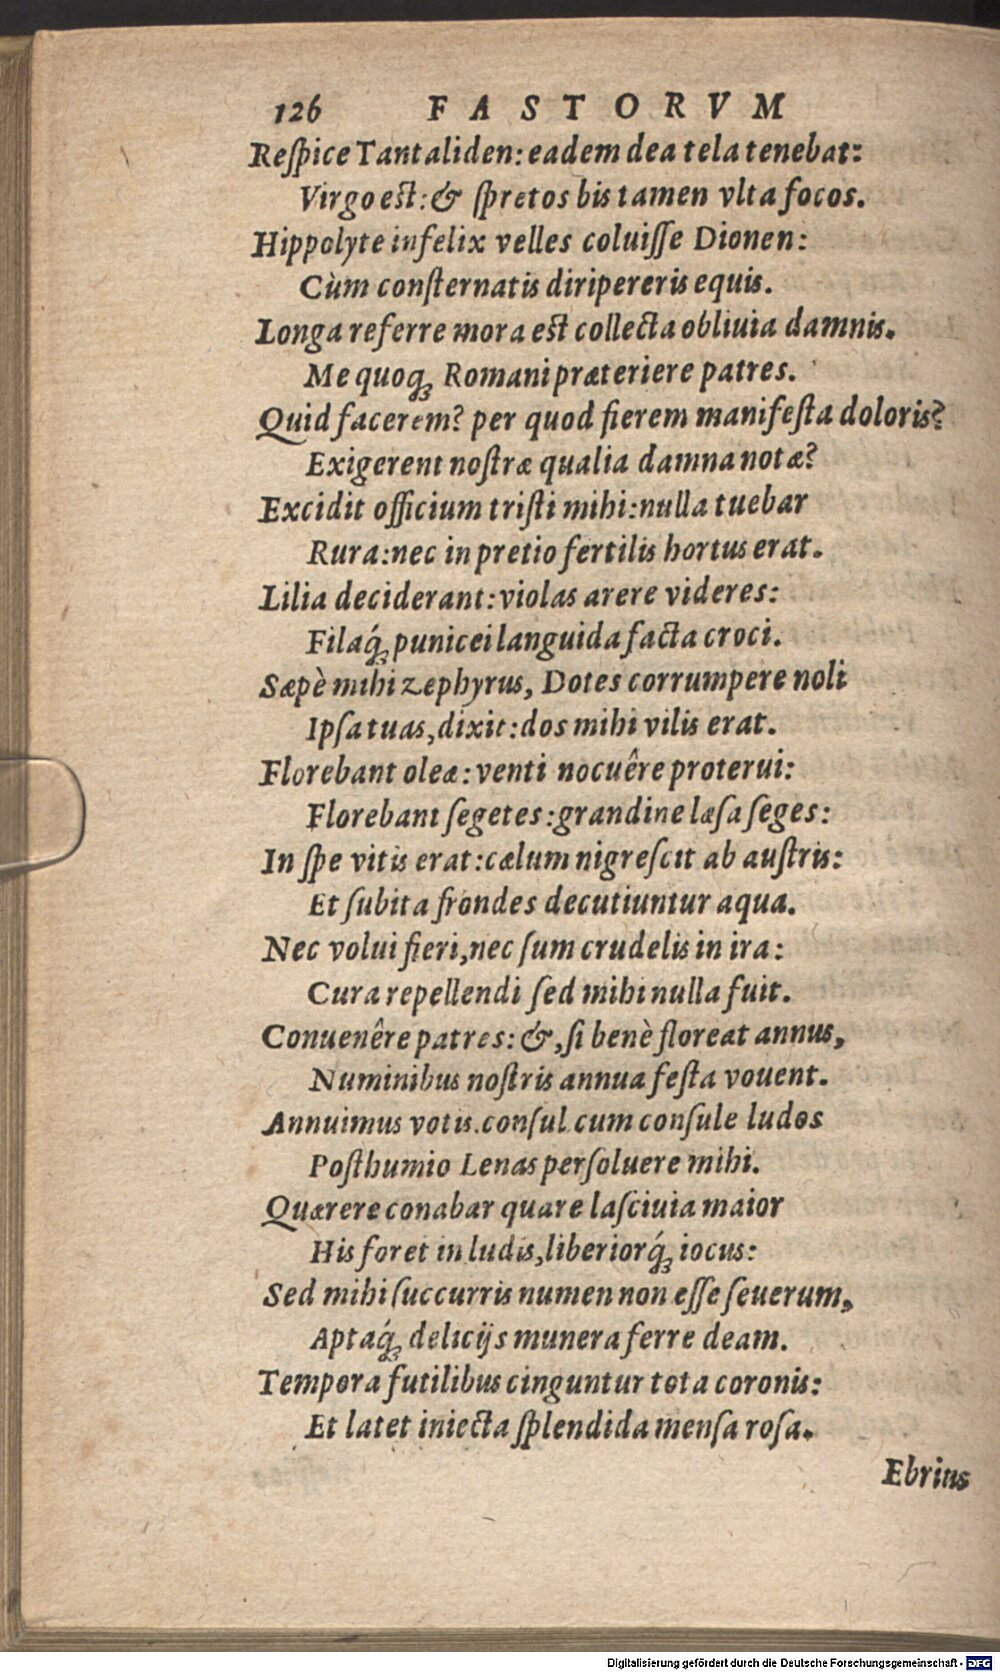 126 FASTORVM
Reſpice Tantaliden: eadem dea tela tenebat:
Virgo eſt: & ſpretos bis tamen vlta focos.
Hippolyte infelix velles coluiſſe Dionen:
Cùm conſternatis diripereris equis.
Longa referre mora eſt collecta obliuia damnis.
Me quoqꝫ Romani præteriere patres.
Quid facerem? per quod fierem manifeſta doloris?
Exigerent noſtræ qualia damna notæ?
Excidit officium triſti mihi: nulla tuebar
Rura: nec in pretio fertilis hortus erat.
Lilia deciderant: violas arere videres:
Filaq́ꝫ punicei languida facta croci.
Sæpè mihi zephyrus, Dotes corrumpere noli
Ipſa tuas, dixit: dos mihi vilis erat.
Florebant oleæ: venti nocuêre proterui:
Florebant ſegetes: grandine læſa ſeges:
In ſpe vitis erat: cælum nigreſcit ab auſtris:
Et ſubita frondes decutiuntur aqua.
Nec volui fieri, nec ſum crudelis in ira:
Cura repellendi ſed mihi nulla fuit.
Conuenêre patres: &, ſi benè floreat annus,
Numinibus noſtris annua feſta vouent.
Annuimus votis. conſul cum conſule ludos
Poſthumio Lenas perſoluere mihi.
Quærere conabar quare laſciuia maior
His foret in ludis, liberiorq́ꝫ iocus:
Sed mihi ſuccurris numen non eſſe ſeuerum,
Aptaq́ꝫ delicijs munera ferre deam.
Tempora futilibus cinguntur tota coronis:
Et latet iniecta ſplendida menſa roſa.
Ebrius
Digitalisierung gefördert durch die Deutsche Forschungsgemeinschaft - DFG